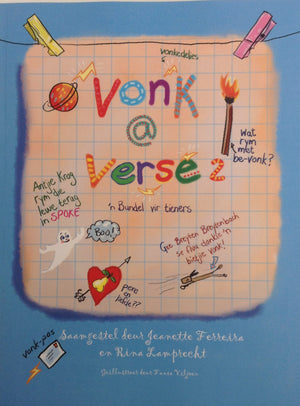 vonkedelies
Vonk
@
Verse 2
Wat
rym
met
be-vonk?
Antjie Krog
rym die
lewe terug
in SPOKE
'n Bundel vir tieners
Boo!
Gee Breyten Breytenbach
se flou donkie 'n
bietjie vonk!
pere
en
liefde??
Saamgestel deur Jeanette Ferreira
en Rina Lamprecht
vonk-pos
Geïllustreer deur Fanie Viljoen